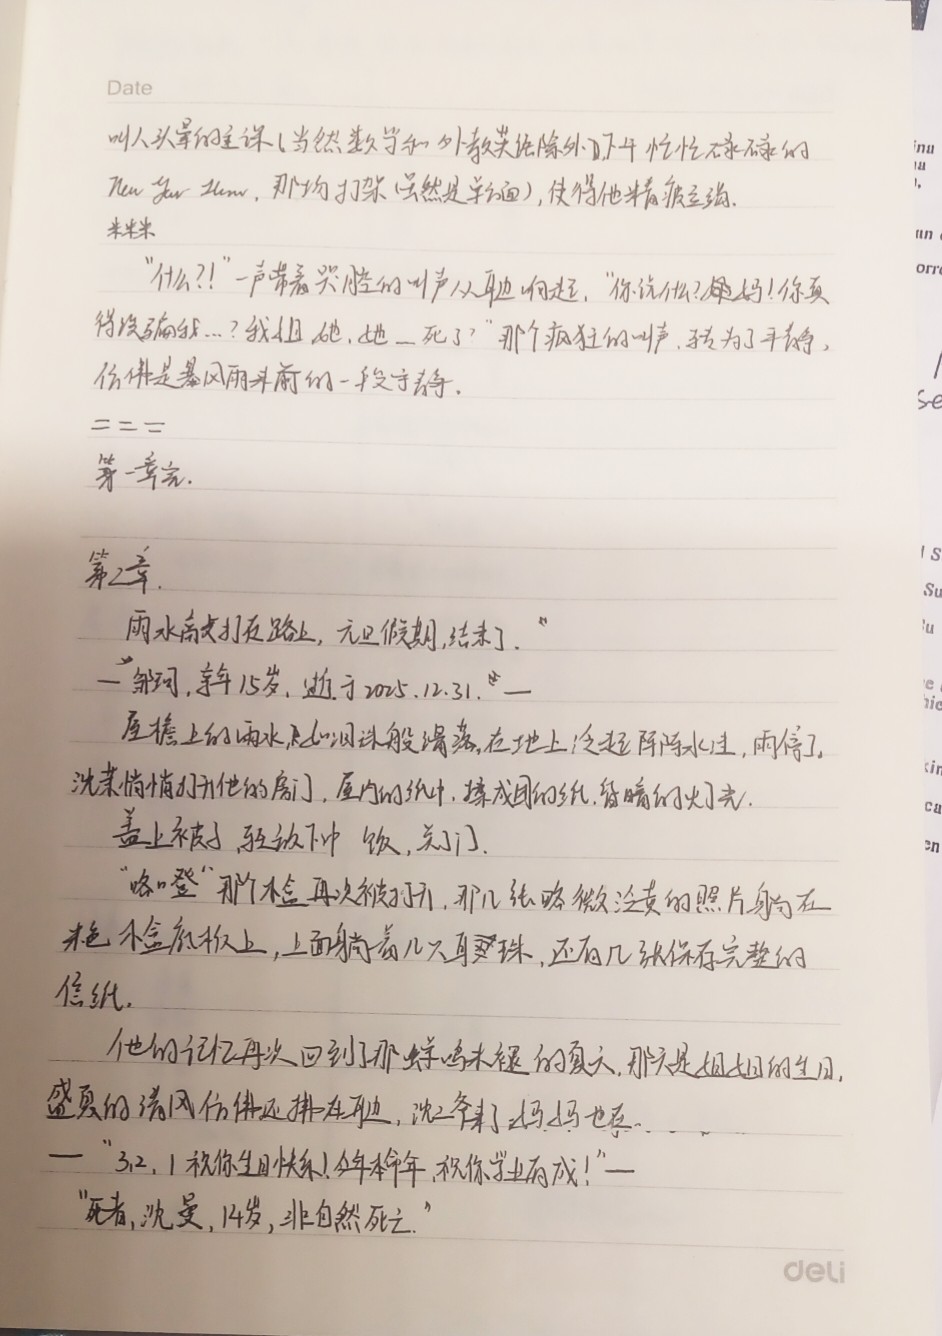 Date
叫人头晕的主课(当然数学和外教英语除外)下午忙忙碌碌的
New Year Show，那场打架(虽然是单方面)，使得他精疲力竭.
米米米
"什么?!"一声带着哭腔的叫声从耳边响起，"你说什么?妈!你真
得没骗我...?我姐她，她—死了?"那个疯狂的叫声，转为了平静，
仿佛是暴风雨来前的一段宁静.
= = =
第一章完.
第2章.
雨水滴打在路上，元旦假期，结束了."
—"邹珂，享年15岁，逝于2025.12.31."—
屋檐上的雨水，如泪珠般滑落，在地上泛起阵阵水洼，雨停了，
沈某悄悄打开他的房门，屋内的纸巾，揉成团的纸，昏暗的灯光.
盖上被子，轻放下冲饮，关门.
"咯噔"那个木盒再次被打开，那几张略微泛黄的照片躺在
米色木盒底板上，上面躺着几只耳珠，还有几张保存完整的
信纸.
他的记忆再次回到了那蝉鸣未褪的夏天，那天是姐姐的生日，
盛夏的清风仿佛还拂在耳边，沈爷来了妈妈也在...
— "3,2,1祝你生日快乐!今年本命年，祝你学业有成!"—
"死者，沈曼，14岁，非自然死亡."
deli
ina
un
orre
Se
Su
su
kin
ca
en